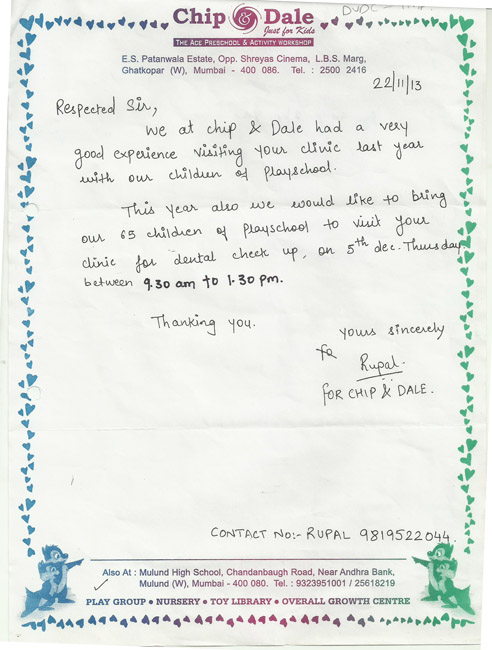 Chip & Dale
Just for Kids
THE ACE PRESCHOOL & ACTIVITY WORKSHOP
E.S. Patanwala Estate, Opp. Shreyas Cinema, L.B.S. Marg,
Ghatkopar (W), Mumbai - 400 086. Tel. : 2500 2416
22/11/13
Respected Sir,
We at chip & Dale had a very
good experience visiting your clinic last year
with our children of Playschool.
This year also we would like to bring
our 65 children of Playschool to visit your
clinic for dental check up, on 5th dec. Thursday
between 9.30 am to 1.30 pm.
Thanking you.
yours sincerely
Rupal.
FOR CHIP & DALE.
CONTACT NO:- RUPAL 9819522044.
Also At : Mulund High School, Chandanbaugh Road, Near Andhra Bank,
Mulund (W), Mumbai - 400 080. Tel. : 9323951001 / 25618219
PLAY GROUP • NURSERY • TOY LIBRARY • OVERALL GROWTH CENTRE